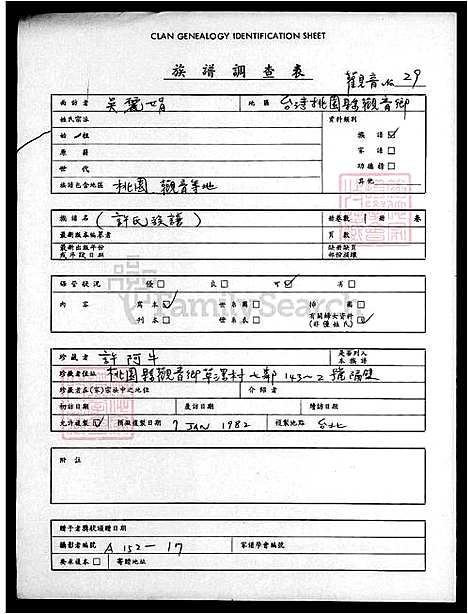 CLAN GENEALOGY IDENTIFICATION SHEET
族譜調查表
觀音 No 29
面訪者 吳麗娟 地區 台灣桃園縣觀音鄉
姓氏宗派 資料類別
始祖 族譜☑
原籍 家譜□
世代 功德譜□
族譜包含地區 桃園 觀音等地 其他
族譜名 (許氏族譜) 冊卷數 1 冊 卷
最新版本編纂者 頁數
最新出版年份 缺冊缺頁
或手段日期 部份損壞
FamilySearch
保管狀況 優□ 良□ 可☑ 劣□
內容 寫本☑ 世系圖□ 排萬□
刊本□ 世系表□ 有關婦女資料□
(非僅姓氏)
珍藏者 許阿牛 是否列入
本族譜
珍藏者住址 桃園縣觀音鄉草漯村七鄰143-2號隔壁
珍藏者在(家)宗祠中之地位 介紹者
初訪日期 複訪日期 續訪日期
允許複製☑ 預擬複製日期 7 JAN 1982 複製地點 台北
附註
贈予者獎狀頒贈日期
攝影者編號 A 152-17 家譜學會編號
要求複本□ 寄贈地址